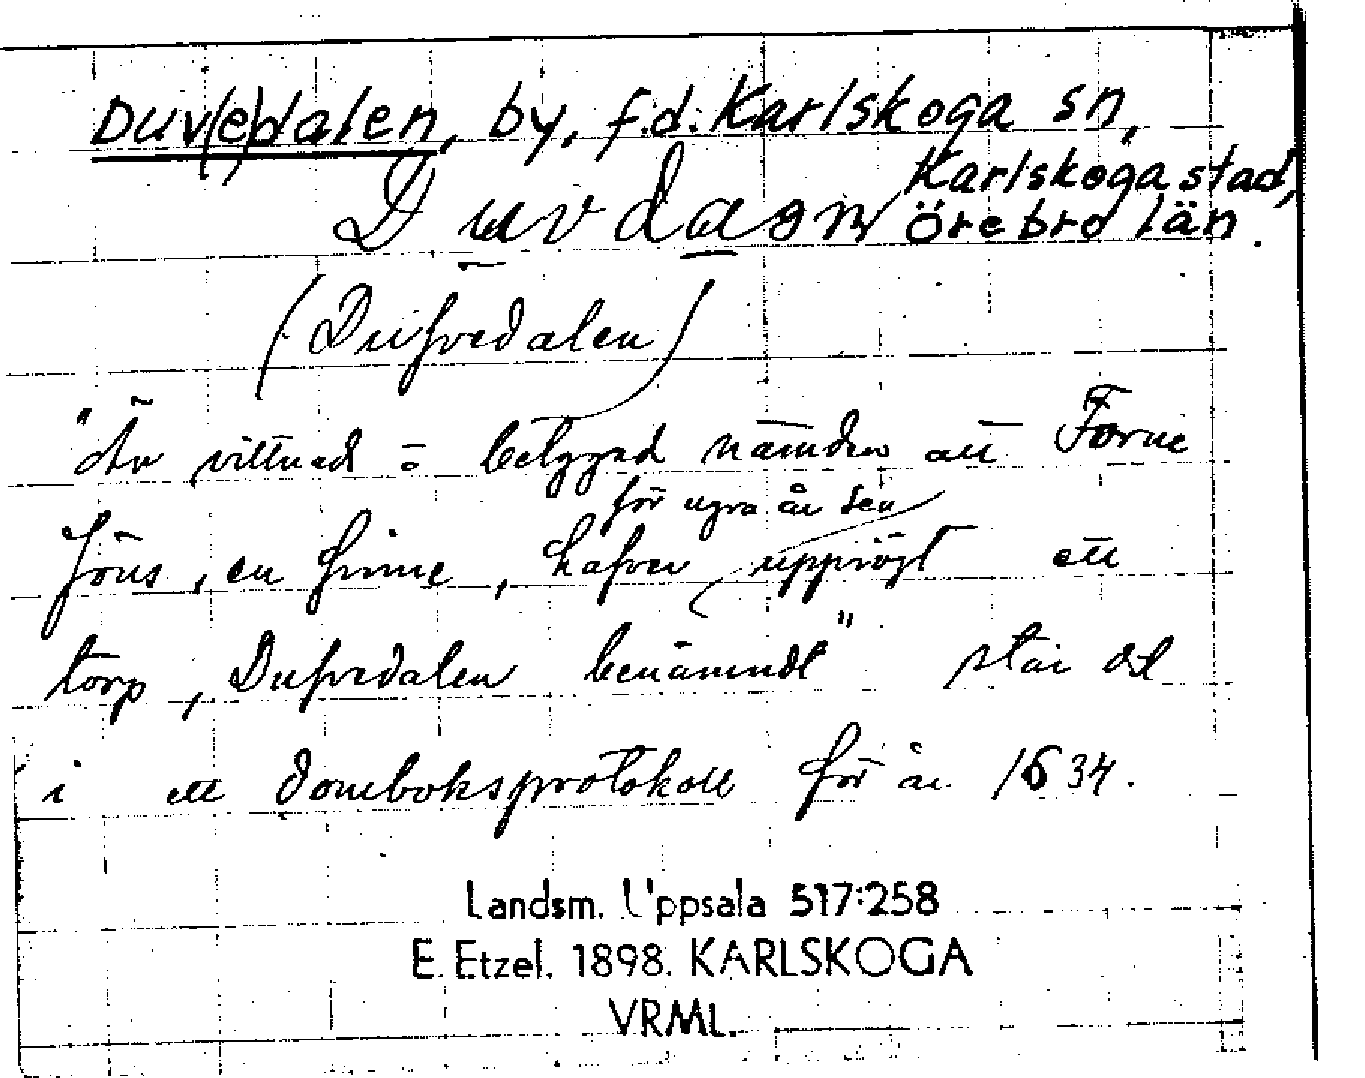 Duv(e)dalen, by, f.d. Karlskoga sn,
Karlskoga stad,
Örebro län.
Duvdaən
(Dufvedalen)
"Är vittnad o betyyad nämden att Forne
för ngra år sen
Jöns, en finne, hafver upprögt ett
torp, Dufvedalen benämndt" står det
i ett domboksprotokoll för år 1634.
Landsm. Uppsala 517:258
E. Etzel. 1898. KARLSKOGA
VRML.